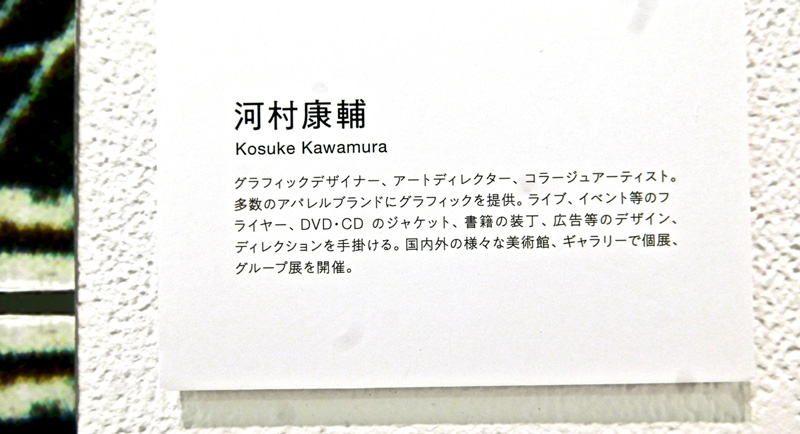 河村康輔
Kosuke Kawamura
グラフィックデザイナー、アートディレクター、コラージュアーティスト。
多数のアパレルブランドにグラフィックを提供。ライブ、イベント等のフ
ライヤー、DVD・CD のジャケット、書籍の装丁、広告等のデザイン、
ディレクションを手掛ける。国内外の様々な美術館、ギャラリーで個展、
グループ展を開催。